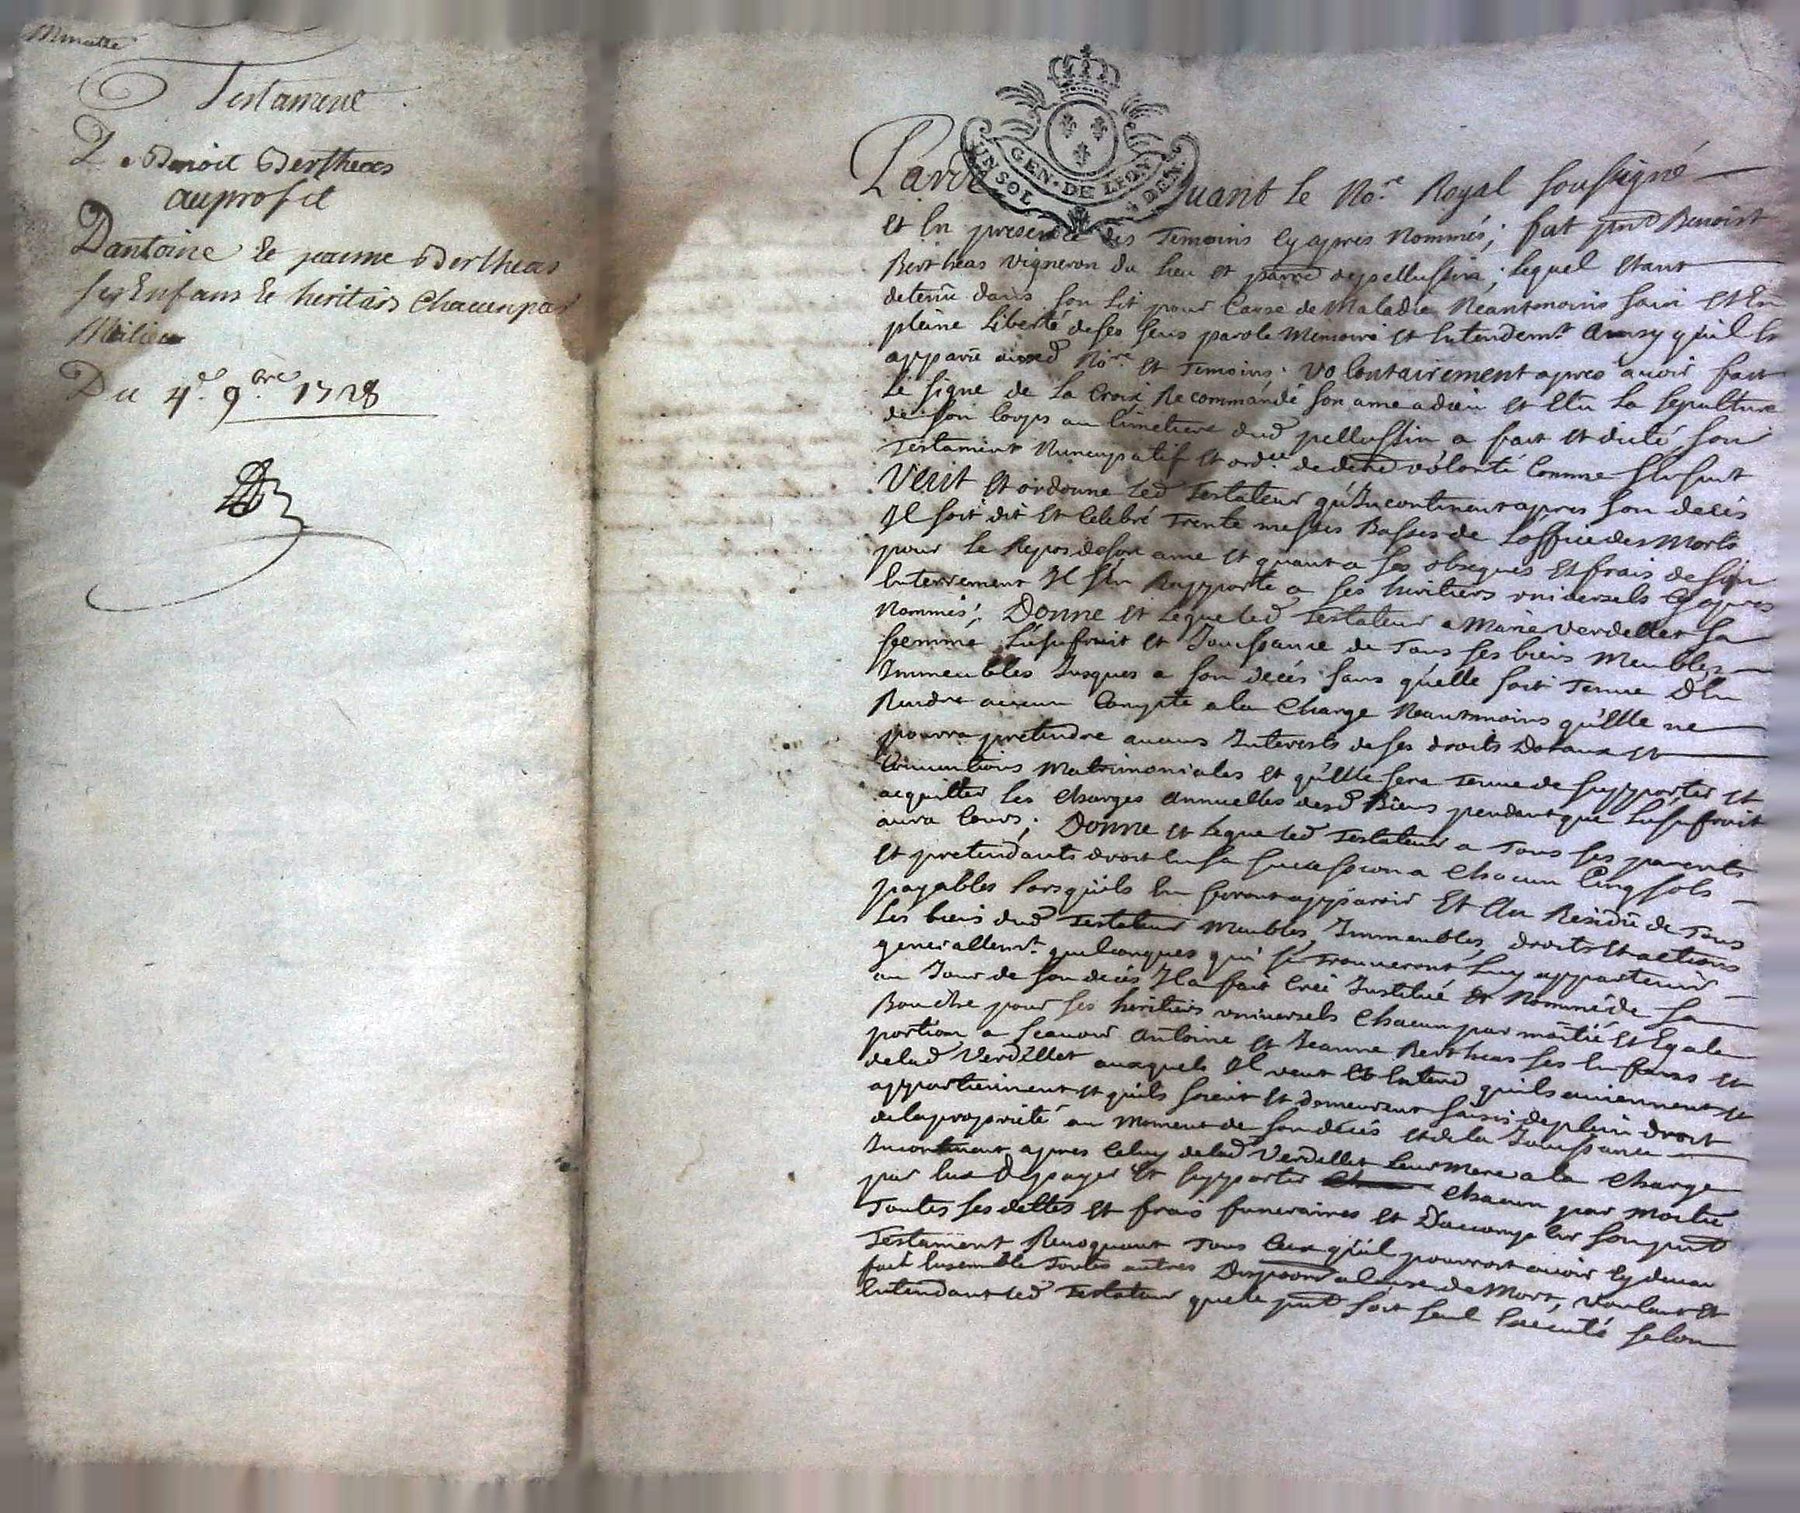 Minutte
Testament
De Benoit Bertheas
au profit
D'antoine & jeanne Bertheas
ses Enfans & heritiers chacun par
Moitié
Du 4e 9bre 1728
GEN. DE LION
UN SOL 4 DEN.
Pardevant le Nore Royal soussigné
et En presence des Temoins Cy apres Nommés; fut pnt Benoist
Bertheas vigneron du lieu et parroe de pellussin; lequel etant
detenu dans son Lit pour Cause de Maladie Neantmoins sain et En
pleine Liberté de ses sens parole Memoire et Entendemt Ainsy qu'il a
apparu aud Nore et Temoins. Volontairement apres avoir fait
Le signe de La Croix Recommandé son ame a dieu et Elu La sepulture
de son Corps au Cimetiere dud pellussin a fait et dicté son
Testament Nuncupatif et ordce de dere volonté Comme s'En suit
Veut et ordonne led Testateur qu'Incontinent apres son deces
Il soit dit et Celebré Trente messes Basses de L'office des Morts
pour Le Repos de son ame et quant a ses obseques et frais de son
Enterrement Il s'En Rapporte a ses heritiers universels Cy apres
Nommés; Donne et Legue led Testateur a Marie Verdellet sa
femme L'usufruit et Jouissance de Tous ses biens Meubles
Immeubles Jusques a son decés sans qu'elle soit Tenue D'En
Rendre aucun Compte a la Charge Neantmoins qu'Elle ne
pourra pretendre aucuns Interests de ses droits Dotaux et
Conventions Matrimoniales et qu'Elle sera Tenue de supporter et
acquitter Les Charges Annuelles desd Biens pendant que L'usufruit
aura Cours; Donne et Legue led Testateur a Tous ses parents
et pretendants droit En sa succession a Chacun Cinq sols
payables Lorsqu'ils En feront apparoir Et Au Residu de Tous
Les biens dud Testateur Meubles, Immeubles, droits et actions
generallemt quelconques qui se Trouveront Luy appartenir
au Jour de son deces Il a fait Créé Institué et Nommé de sa
Bouche pour ses heritiers universels Chacun par moitié et Egale
portion a sçavoir Antoine et Jeanne Bertheas ses Enfans et
de lad Verdellet auxquels Il veut et Entend qu'ils aviennent et
appartiennent et qu'ils soient et demeurent saisis de plein droit
de la proprieté au Moment de son deces et de la Jouissance
Incontinent apres Celuy de lad Verdellet Leur Mere a la Charge
par Eux De payer et supporter chacun par Moitié
Toutes ses dettes et frais funeraires et D'accomplir son pnt
Testament Revoquant Tous Ceux qu'il pourroit avoir Cy devant
fait Ensemble Toutes autres Dispoons a Cause de Mort, voulant et
Entendant led Testateur que le pnt soit seul Executé selon